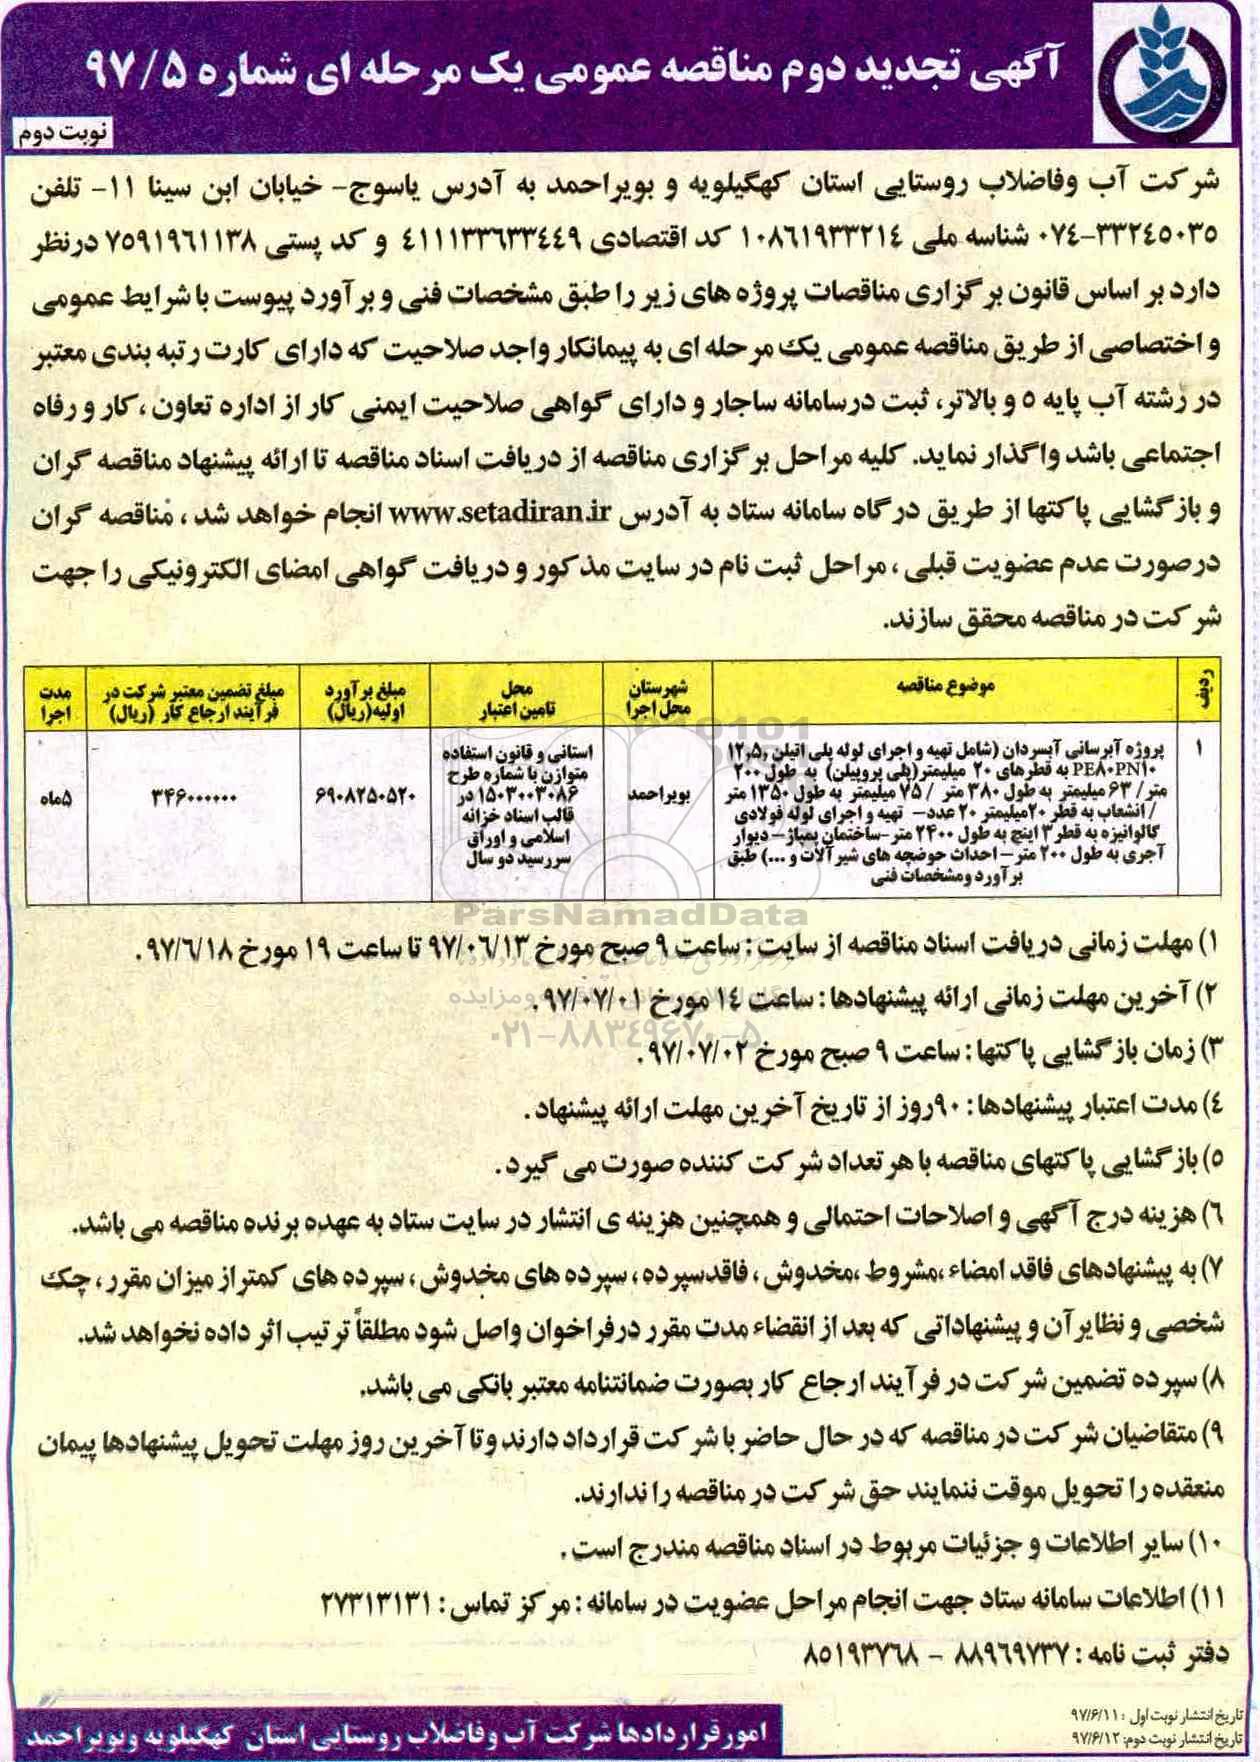 آگهی تجدید دوم مناقصه عمومی یک مرحله ای شماره ۹۷/۵
نوبت دوم
شرکت آب وفاضلاب روستایی استان کهگیلویه و بویراحمد به آدرس یاسوج- خیابان ابن سینا ۱۱- تلفن
۰۷٤-۳۳۲٤۵۰۳۵ شناسه ملی ۱۰۸٦۱۹۳۳۲۱٤ کد اقتصادی ٤۱۱۱۳۳٦۳۳٤٤۹ و کد پستی ۷۵۹۱۹٦۱۱۳۸ درنظر
دارد بر اساس قانون برگزاری مناقصات پروژه های زیر را طبق مشخصات فنی و برآورد پیوست با شرایط عمومی
و اختصاصی از طریق مناقصه عمومی یک مرحله ای به پیمانکار واجد صلاحیت که دارای کارت رتبه بندی معتبر
در رشته آب پایه ۵ و بالاتر، ثبت درسامانه ساجار و دارای گواهی صلاحیت ایمنی کار از اداره تعاون ،کار و رفاه
اجتماعی باشد واگذار نماید. کلیه مراحل برگزاری مناقصه از دریافت اسناد مناقصه تا ارائه پیشنهاد مناقصه گران
و بازگشایی پاکتها از طریق درگاه سامانه ستاد به آدرس www.setadiran.ir انجام خواهد شد ، مناقصه گران
درصورت عدم عضویت قبلی ، مراحل ثبت نام در سایت مذکور و دریافت گواهی امضای الکترونیکی را جهت
شرکت در مناقصه محقق سازند.
ردیف
موضوع مناقصه
شهرستان محل اجرا
محل تامین اعتبار
مبلغ برآورد اولیه(ریال)
مبلغ تضمین معتبر شرکت در فرآیند ارجاع کار (ریال)
مدت اجرا
۱
پروژه آبرسانی آبسردان (شامل تهیه و اجرای لوله پلی اتیلن ۱۲٫۵,
PE۸۰PN۱۰ به قطرهای ۲۰ میلیمتر(پلی پروپیلن) به طول ۲۰۰
متر/ ۶۳ میلیمتر به طول ۳۸۰ متر / ۷۵ میلیمتر به طول ۱۳۵۰ متر
/ انشعاب به قطر ۲۰میلیمتر ۲۰ عدد- تهیه و اجرای لوله فولادی
گالوانیزه به قطر ۳ اینچ به طول ۲۴۰۰ متر-ساختمان پمپاژ- دیوار
آجری به طول ۲۰۰ متر- احداث حوضچه های شیرآلات و ...) طبق
برآورد ومشخصات فنی
بویراحمد
استانی و قانون استفاده
متوازن با شماره طرح
۱۵۰۳۰۰۳۰۸۶ در
قالب اسناد خزانه
اسلامی و اوراق
سررسید دو سال
۶۹۰۸۲۵۰۵۲۰
۳۴۶۰۰۰۰۰۰
۵ماه
ParsNamadData
۰۲۱-۸۸۳۴۹۶۷۰-۵
۱) مهلت زمانی دریافت اسناد مناقصه از سایت : ساعت ۹ صبح مورخ ۹۷/۰٦/۱۳ تا ساعت ۱۹ مورخ ۹۷/٦/۱۸ .
۲) آخرین مهلت زمانی ارائه پیشنهادها : ساعت ۱٤ مورخ ۹۷/۰۷/۰۱ .
۳) زمان بازگشایی پاکتها : ساعت ۹ صبح مورخ ۹۷/۰۷/۰۲ .
٤) مدت اعتبار پیشنهادها : ۹۰روز از تاریخ آخرین مهلت ارائه پیشنهاد .
۵) بازگشایی پاکتهای مناقصه با هر تعداد شرکت کننده صورت می گیرد .
٦) هزینه درج آگهی و اصلاحات احتمالی و همچنین هزینه ی انتشار در سایت ستاد به عهده برنده مناقصه می باشد.
۷) به پیشنهادهای فاقد امضاء ،مشروط ،مخدوش ، فاقدسپرده ، سپرده های مخدوش ، سپرده های کمتر از میزان مقرر ، چک
شخصی و نظایر آن و پیشنهاداتی که بعد از انقضاء مدت مقرر درفراخوان واصل شود مطلقاً ترتیب اثر داده نخواهد شد.
۸) سپرده تضمین شرکت در فرآیند ارجاع کار بصورت ضمانتنامه معتبر بانکی می باشد.
۹) متقاضیان شرکت در مناقصه که در حال حاضر با شرکت قرارداد دارند وتا آخرین روز مهلت تحویل پیشنهادها پیمان
منعقده را تحویل موقت ننمایند حق شرکت در مناقصه را ندارند.
۱۰) سایر اطلاعات و جزئیات مربوط در اسناد مناقصه مندرج است .
۱۱) اطلاعات سامانه ستاد جهت انجام مراحل عضویت در سامانه : مرکز تماس : ۲۷۳۱۳۱۳۱
دفتر ثبت نامه : ۸۸۹٦۹۷۳۷ - ۸۵۱۹۳۷٦۸
تاریخ انتشار نوبت اول : ۹۷/۶/۱۱
تاریخ انتشار نوبت دوم: ۹۷/۶/۱۲
امور قراردادها شرکت آب وفاضلاب روستایی استان کهگیلویه وبویراحمد